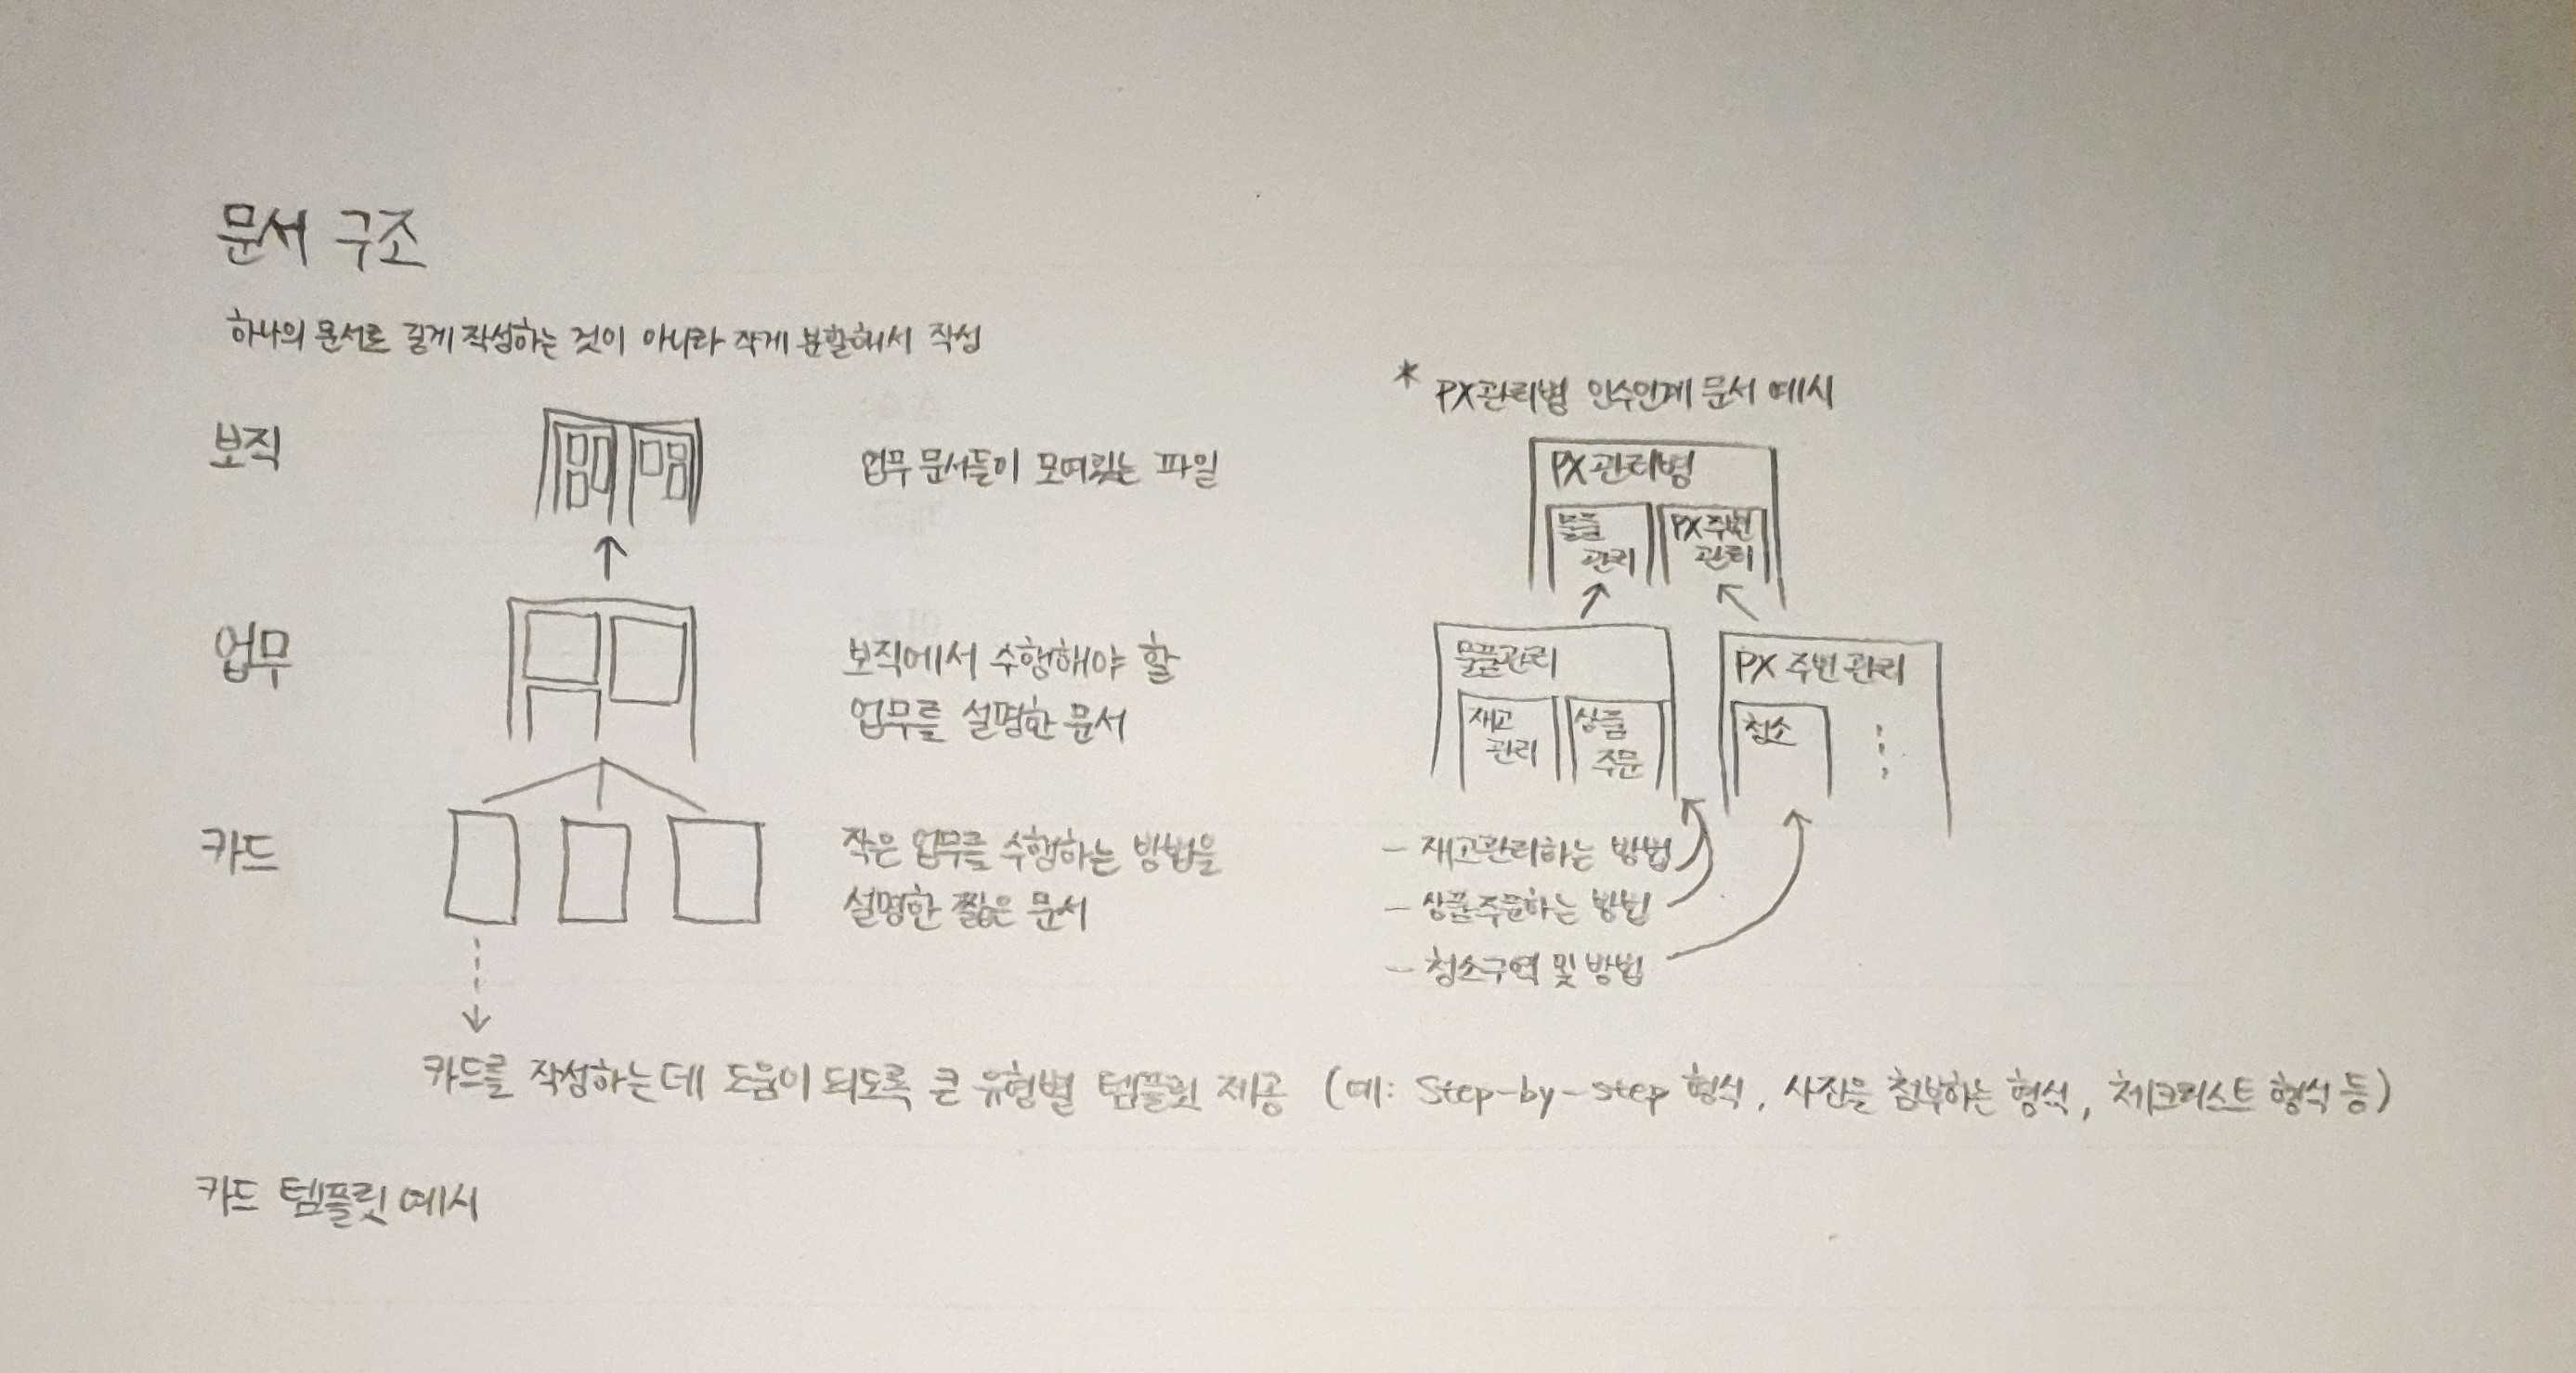 문서 구조
하나의 문서로 길게 작성하는 것이 아니라 작게 분할해서 작성
보직
업무 문서들이 모여있는 파일
업무
보직에서 수행해야 할
업무를 설명한 문서
카드
작은 업무를 수행하는 방법을
설명한 짧은 문서
* PX관리병 인수인계 문서 예시
PX관리병
물품
관리
PX주변
관리
물품관리
재고
관리
상품
주문
PX 주변 관리
청소
- 재고관리하는 방법
- 상품주문하는 방법
- 청소구역 및 방법
카드를 작성하는데 도움이 되도록 큰 유형별 템플릿 제공 (예: Step-by-step 형식, 사진을 첨부하는 형식, 체크리스트 형식 등)
카드 템플릿 예시